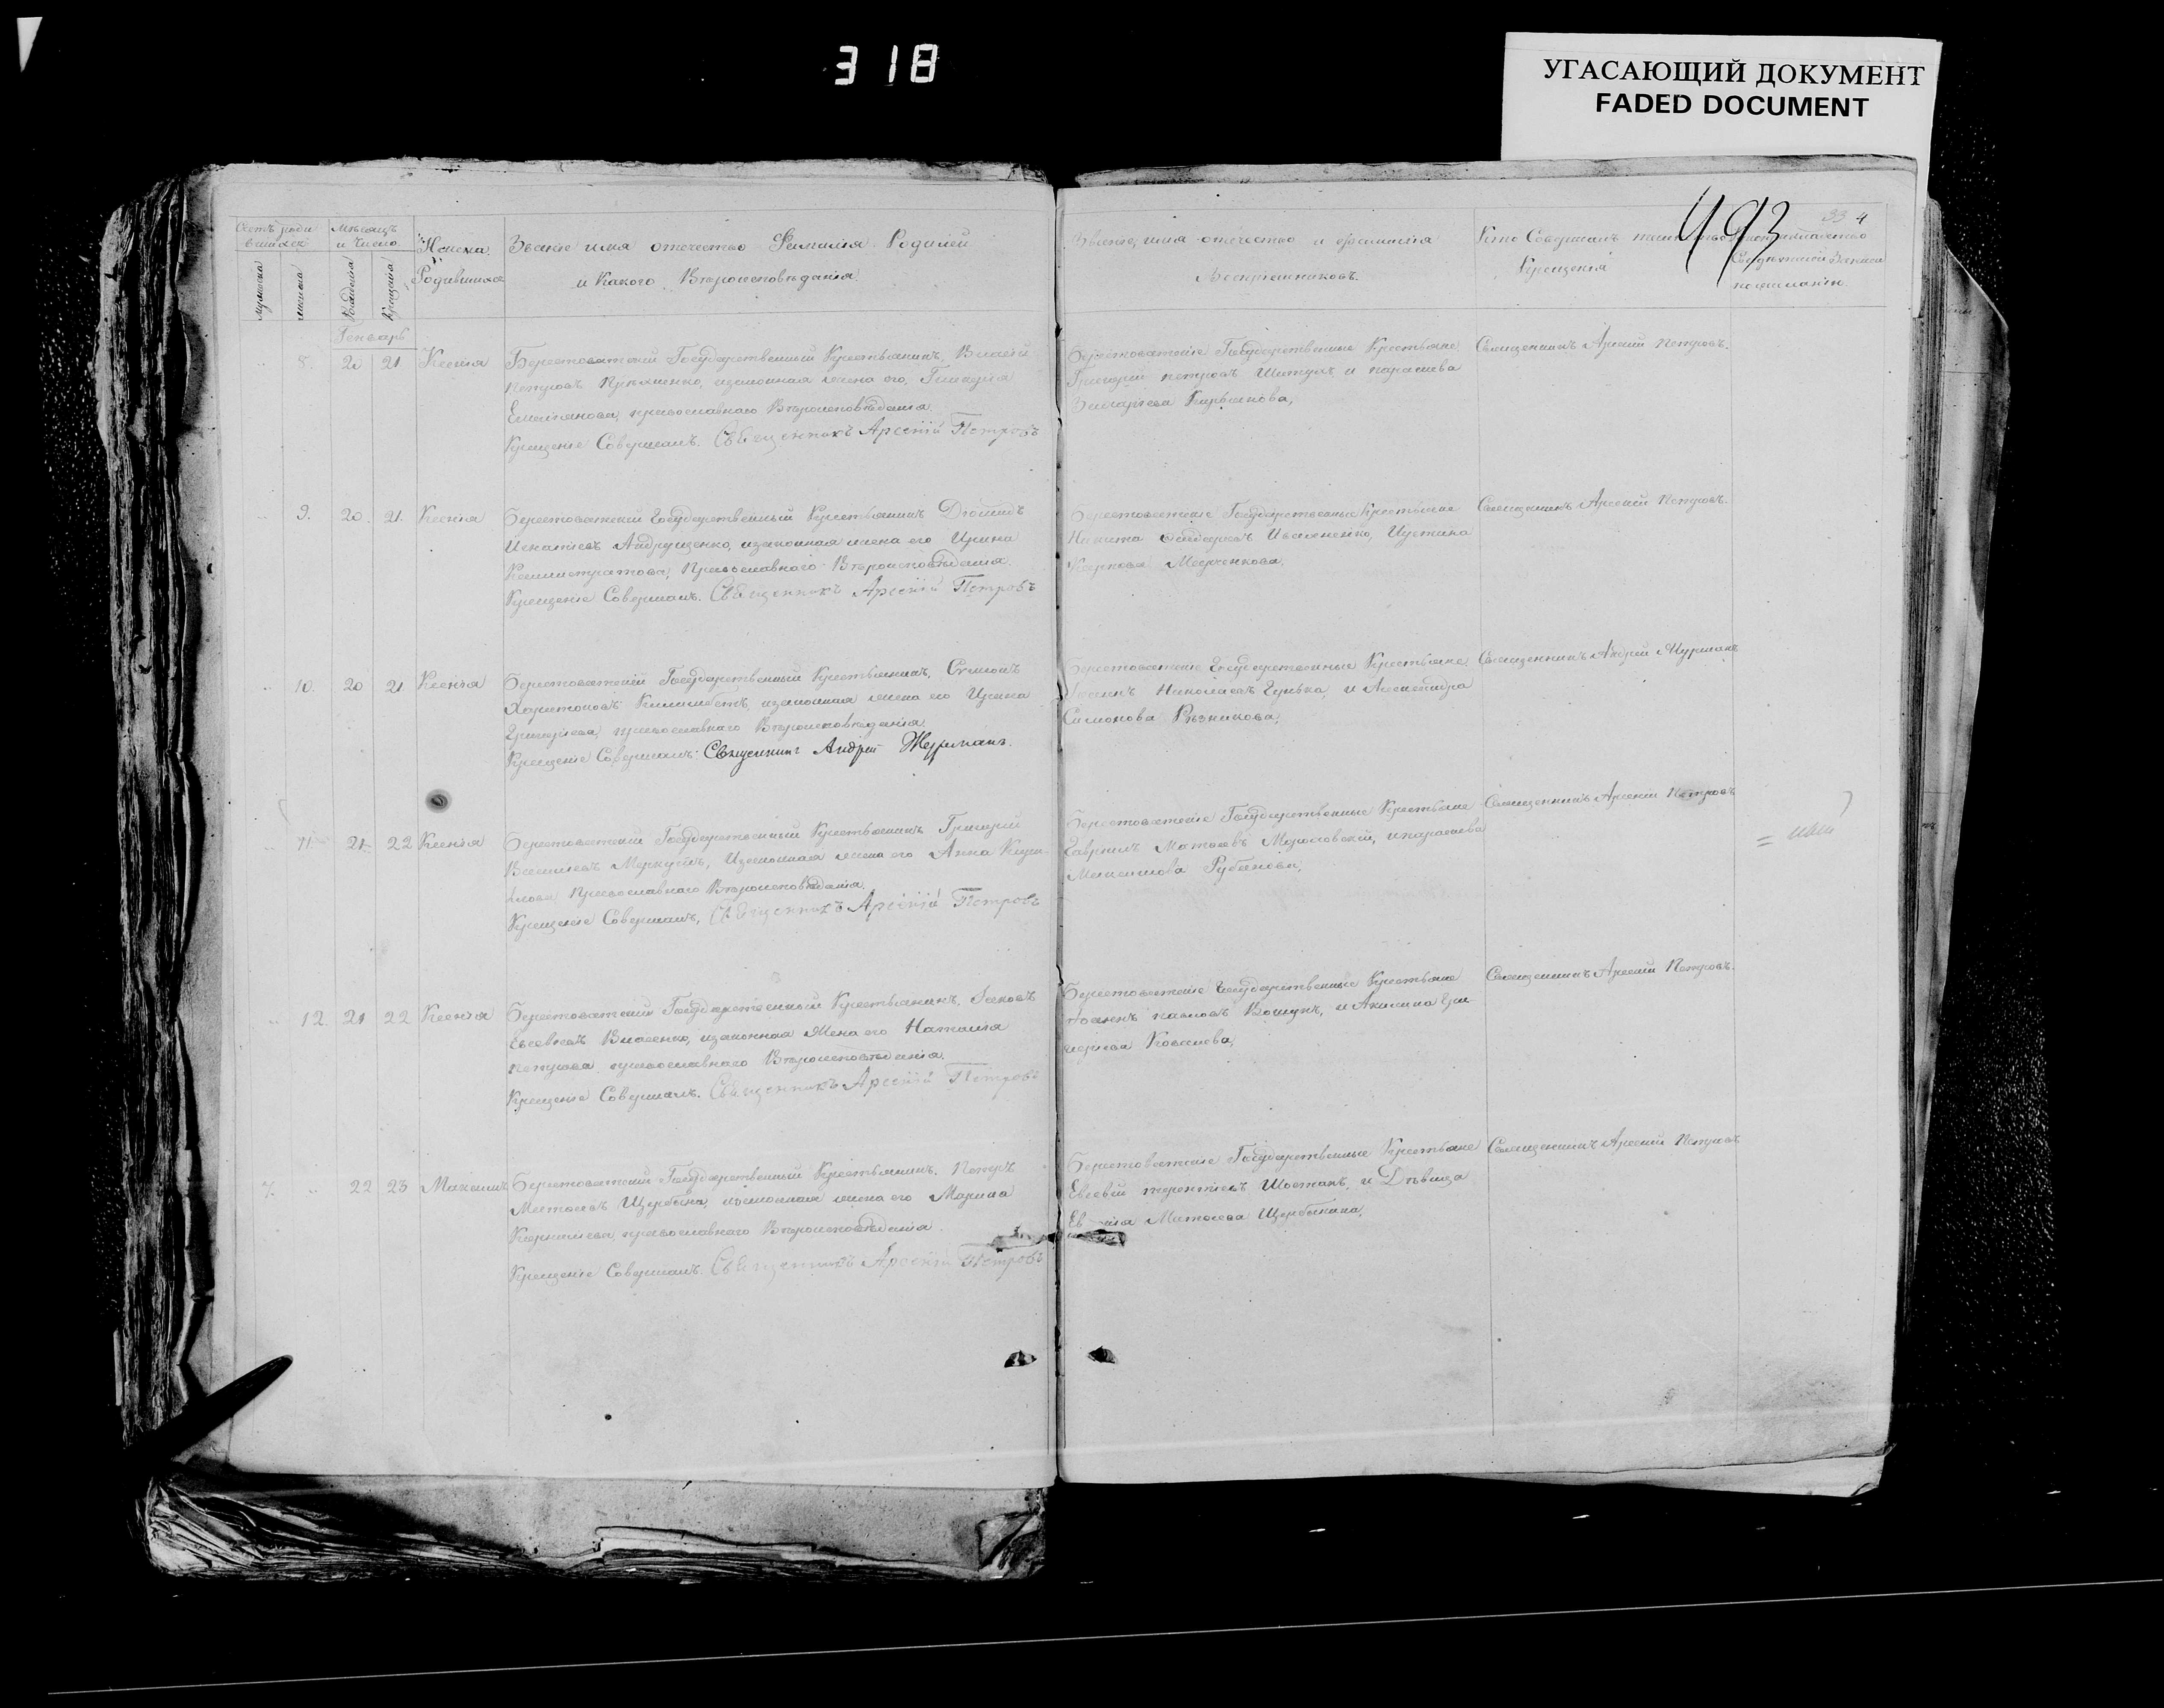 318
УГАСАЮЩИЙ ДОКУМЕНТ
FADED DOCUMENT
493
33 4
Счетъ роди
вшихся
мужеска
женска
Мѣсяцъ
и Число
Рожденія
Крещенія
Имена
Родившихся
Званіе имя отечество Фамилія Родилей
и Какого Вѣроисповѣданія.
Званіе, имя отчество и фамилія
Воспріемниковъ.
Кто Совершалъ таинство
Крещенія
Рукоприкладство
Свидѣтелей Записи
по желанію.
Генварь
8. 20 21. Ксенія
Берестоватскій Государственный Крестьянинъ, Власій
Петровъ законная жена его,
Емельянова, православнаго Вѣроисповѣданія.
Крещеніе Совершалъ. Священникъ Арсеній Петровъ
Берестоватскіе Государственные Крестьяне
Григорій Петровъ и Параскева
Захаріева
Священникъ Арсеній Петровъ.
9. 20. 21. Ксенія
Берестоватскій Государственный Крестьянинъ Діомидъ
Игнатіевъ Андрущенко, изаконная жена его Ирина
Каллистратова, Православнаго Вѣроисповѣданія.
Крещеніе Совершалъ. Священникъ Арсеній Петровъ
Берестоватскіе Государственные Крестьяне
Никита Иваненко, Иустина
Карпова
Священникъ Арсеній Петровъ.
10. 20 21 Ксенія
Берестоватскій Государственный Крестьянинъ, Симеонъ
Харитоновъ изаконная жена его Ирина
Григоріева, православнаго Вѣроисповѣданія
Крещеніе Совершалъ: Священникъ Андрей Журманъ.
Берестоватскіе Государственные Крестьяне
Николаевъ и Александра
Симонова Рѣзникова,
Священникъ Андрей Журманъ
11. 21. 22 Ксенія
Берестоватскій Государственный Крестьянинъ Григорій
Василіевъ Меркулъ, Изаконная жена его Анна
Православнаго Вѣроисповѣданія.
Крещеніе Совершалъ, Священникъ Арсеній Петровъ
Берестоватскіе Государственные Крестьяне
Гавріилъ Матѳеевъ ипараскева
Максимова Рубанова,
Священникъ Арсеній Петровъ
12. 21 22 Ксенія
Берестоватскій Государственный Крестьянинъ, Іаковъ
Евсевіевъ Власенко, изаконная Жена его Наталія
Петрова православнаго Вѣроисповѣданія.
Крещеніе Совершалъ. Священникъ Арсеній Петровъ
Берестоватскіе Государственные Крестьяне
Іоаннъ Павловъ и Акилина Гри-
горіева Ковалева,
Священникъ Арсеній Петровъ.
7. 22 23 Михаилъ
Берестоватскій Государственный Крестьянинъ. Петръ
Матѳеевъ Щербина, изаконная жена его Марина
Корниліева православнаго Вѣроисповѣданія.
Крещеніе Совершалъ. Священникъ Арсеній Петровъ
Берестоватскіе Государственные Крестьяне
Евсевій терентіевъ Шостакъ, и Дѣвица
Матѳеева Щербинина,
Священникъ Арсеній Петровъ